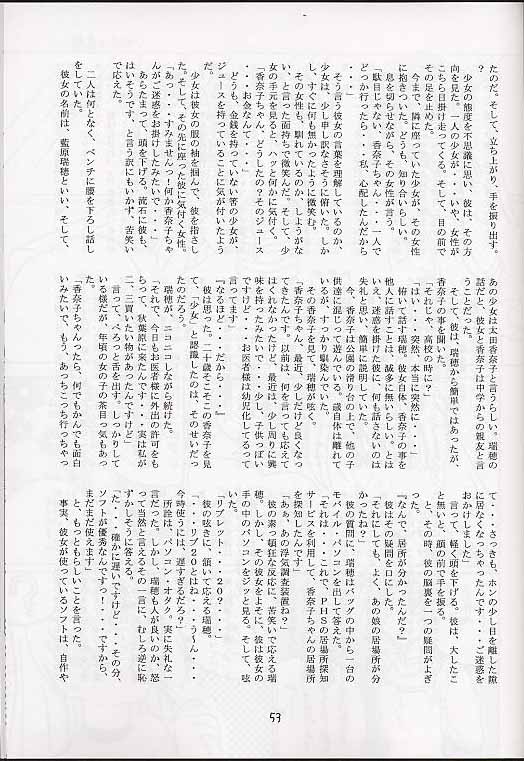 たのだ。そして、立ち上がり、手を振り出す。
?
少女の態度を不思議に思い、彼は、その方
向を見た。一人の少女が・・・いや、女性が
こちら目掛け走ってくる。そして、目の前で
その足を止めた。
今まで、隣に座っていた少女が、その女性
に抱きついた。どうも、知り合いらしい。
息を切らせながら、その女性が言う。
「駄目じゃない、香奈子ちゃん・・・一人で
どっか行ったら・・・私、心配したんだから
・・・」
そう言う彼女の言葉を理解しているのか、
少女は、少し申し訳なさそうに俯いた。しか
し、すぐに何も無かったように微笑む。
その女性も、馴れているのか、しようがな
い、と言った面持ちで微笑んだ。そして、少
女の手元を見ると、ハッと何かに気付く。
「香奈子ちゃん、どうしたのそのジュース
・・・お金なんて・・・」
どうも、金銭を持っていない筈の少女が、
ジュースを持っていることに気が付いたよう
だ。
少女は彼女の服の袖を掴んで、彼を指さし
た。そして、その先に座った彼に気付く女性。
「あっ・・・すみませんっ！何か香奈子ちゃ
んがご迷惑をお掛けしたみたいで・・・」
あらたまって、頭を下げる。流石に彼も、
はいそうです、と言う訳にもいかず、苦笑い
で応えた。
二人は何となく、ベンチに腰を下ろし話し
をしていた。
彼女の名前は、藍原瑞穂といい、そして、
あの少女は太田香奈子と言うらしい。瑞穂の
話だと、彼女と香奈子は中学からの親友と言
うことだった。
そして、彼は、瑞穂から簡単ではあったが、
香奈子の事を聞いた。
「それじゃ、高校の時に？」
「はい・・・突然、本当に突然に・・・」
俯いて話す瑞穂。彼女自体、香奈子の事を
他人に話すことは、滅多に無いらしい。とは
いえ、迷惑を掛けた彼に、何も話さないのは
失礼と思い、簡単に説明していた。
今、香奈子は公園の滑り台の上で、他の子
供達に混じって遊んでいる。歳自体は離れて
いるが、すっかり馴染んでいた。
その香奈子を見て、瑞穂が呟く。
「香奈子ちゃん、最近、少しだけど良くなっ
てきたんです。以前は、何を言っても応えて
はくれなかったけど、最近は、少し周りに興
味を持ったみたいで・・・少し、子供っぽい
ですけど・・・お医者様は幼児化してるって
言ってます」
『なるほど・・・だから・・・』
彼は思った。二十歳そこそこの香奈子を見
て、「少女」と認識したのは、そのせいだっ
たのだろう。
瑞穂が、ニコニコしながら続けた。
「それで、今日もお医者様に外出の許可をも
らって、秋葉原に来たんです・・・実は私が
二、三買いたい物があったんですけど」
言って、ぺろっと舌を出す。しっかりして
いる様だが、年頃の女の子の茶目っ気もあっ
た。
「香奈子ちゃんったら、何でもかんでも面白
いみたいで、もう、あっちこっち行っちゃっ
て・・・さっきも、ホンの少し目を離した隙
に居なくなっちゃったんです・・・ご迷惑を
おかけしました」
言って、軽く頭を下げる。彼は、大したこ
と無いと、顔の前で手を振る。
と、その時、彼の脳裏を一つの疑問がよぎ
った。
『なんで、居所が分かったんだ？』
彼はその疑問を口にした。
「それにしても、よく、あの娘の居場所が分
かったね？」
彼の質問に、瑞穂はバッグの中から一台の
モバイル・パソコンを出して答えた。
「それは・・・これで、ＰＨＳの居場所探知
サービスを利用して、香奈子ちゃんの居場所
を探知したんです」
「あぁ、あの浮気調査装置ね？」
彼の素っ頓狂な反応に、苦笑いで応える瑞
穂。しかし、その彼女をよそに、彼は彼女の
手の中のパソコンをジッと見る。そして、呟
いた。
「リブレット・・・２０？・・・」
彼の呟きに、頷いて応える瑞穂。
「・・・リブ２０とはね・・・う～ん・・・
今時使うには、遅すぎるだろう？」
所詮は、パソコン・オタク。実に失礼な一
言だった。しかし、瑞穂も人が良いのか、怒
って当然と言えるその一言に、むしろ逆に恥
ずかしそうに答える。
「た・・・確かに遅いですけど・・・その分、
ソフトが優秀なんですっ！・・・ですから、
まだまだ使えます」
と、もっともらしいことを言った。
事実、彼女が使っているソフトは、自作や
53